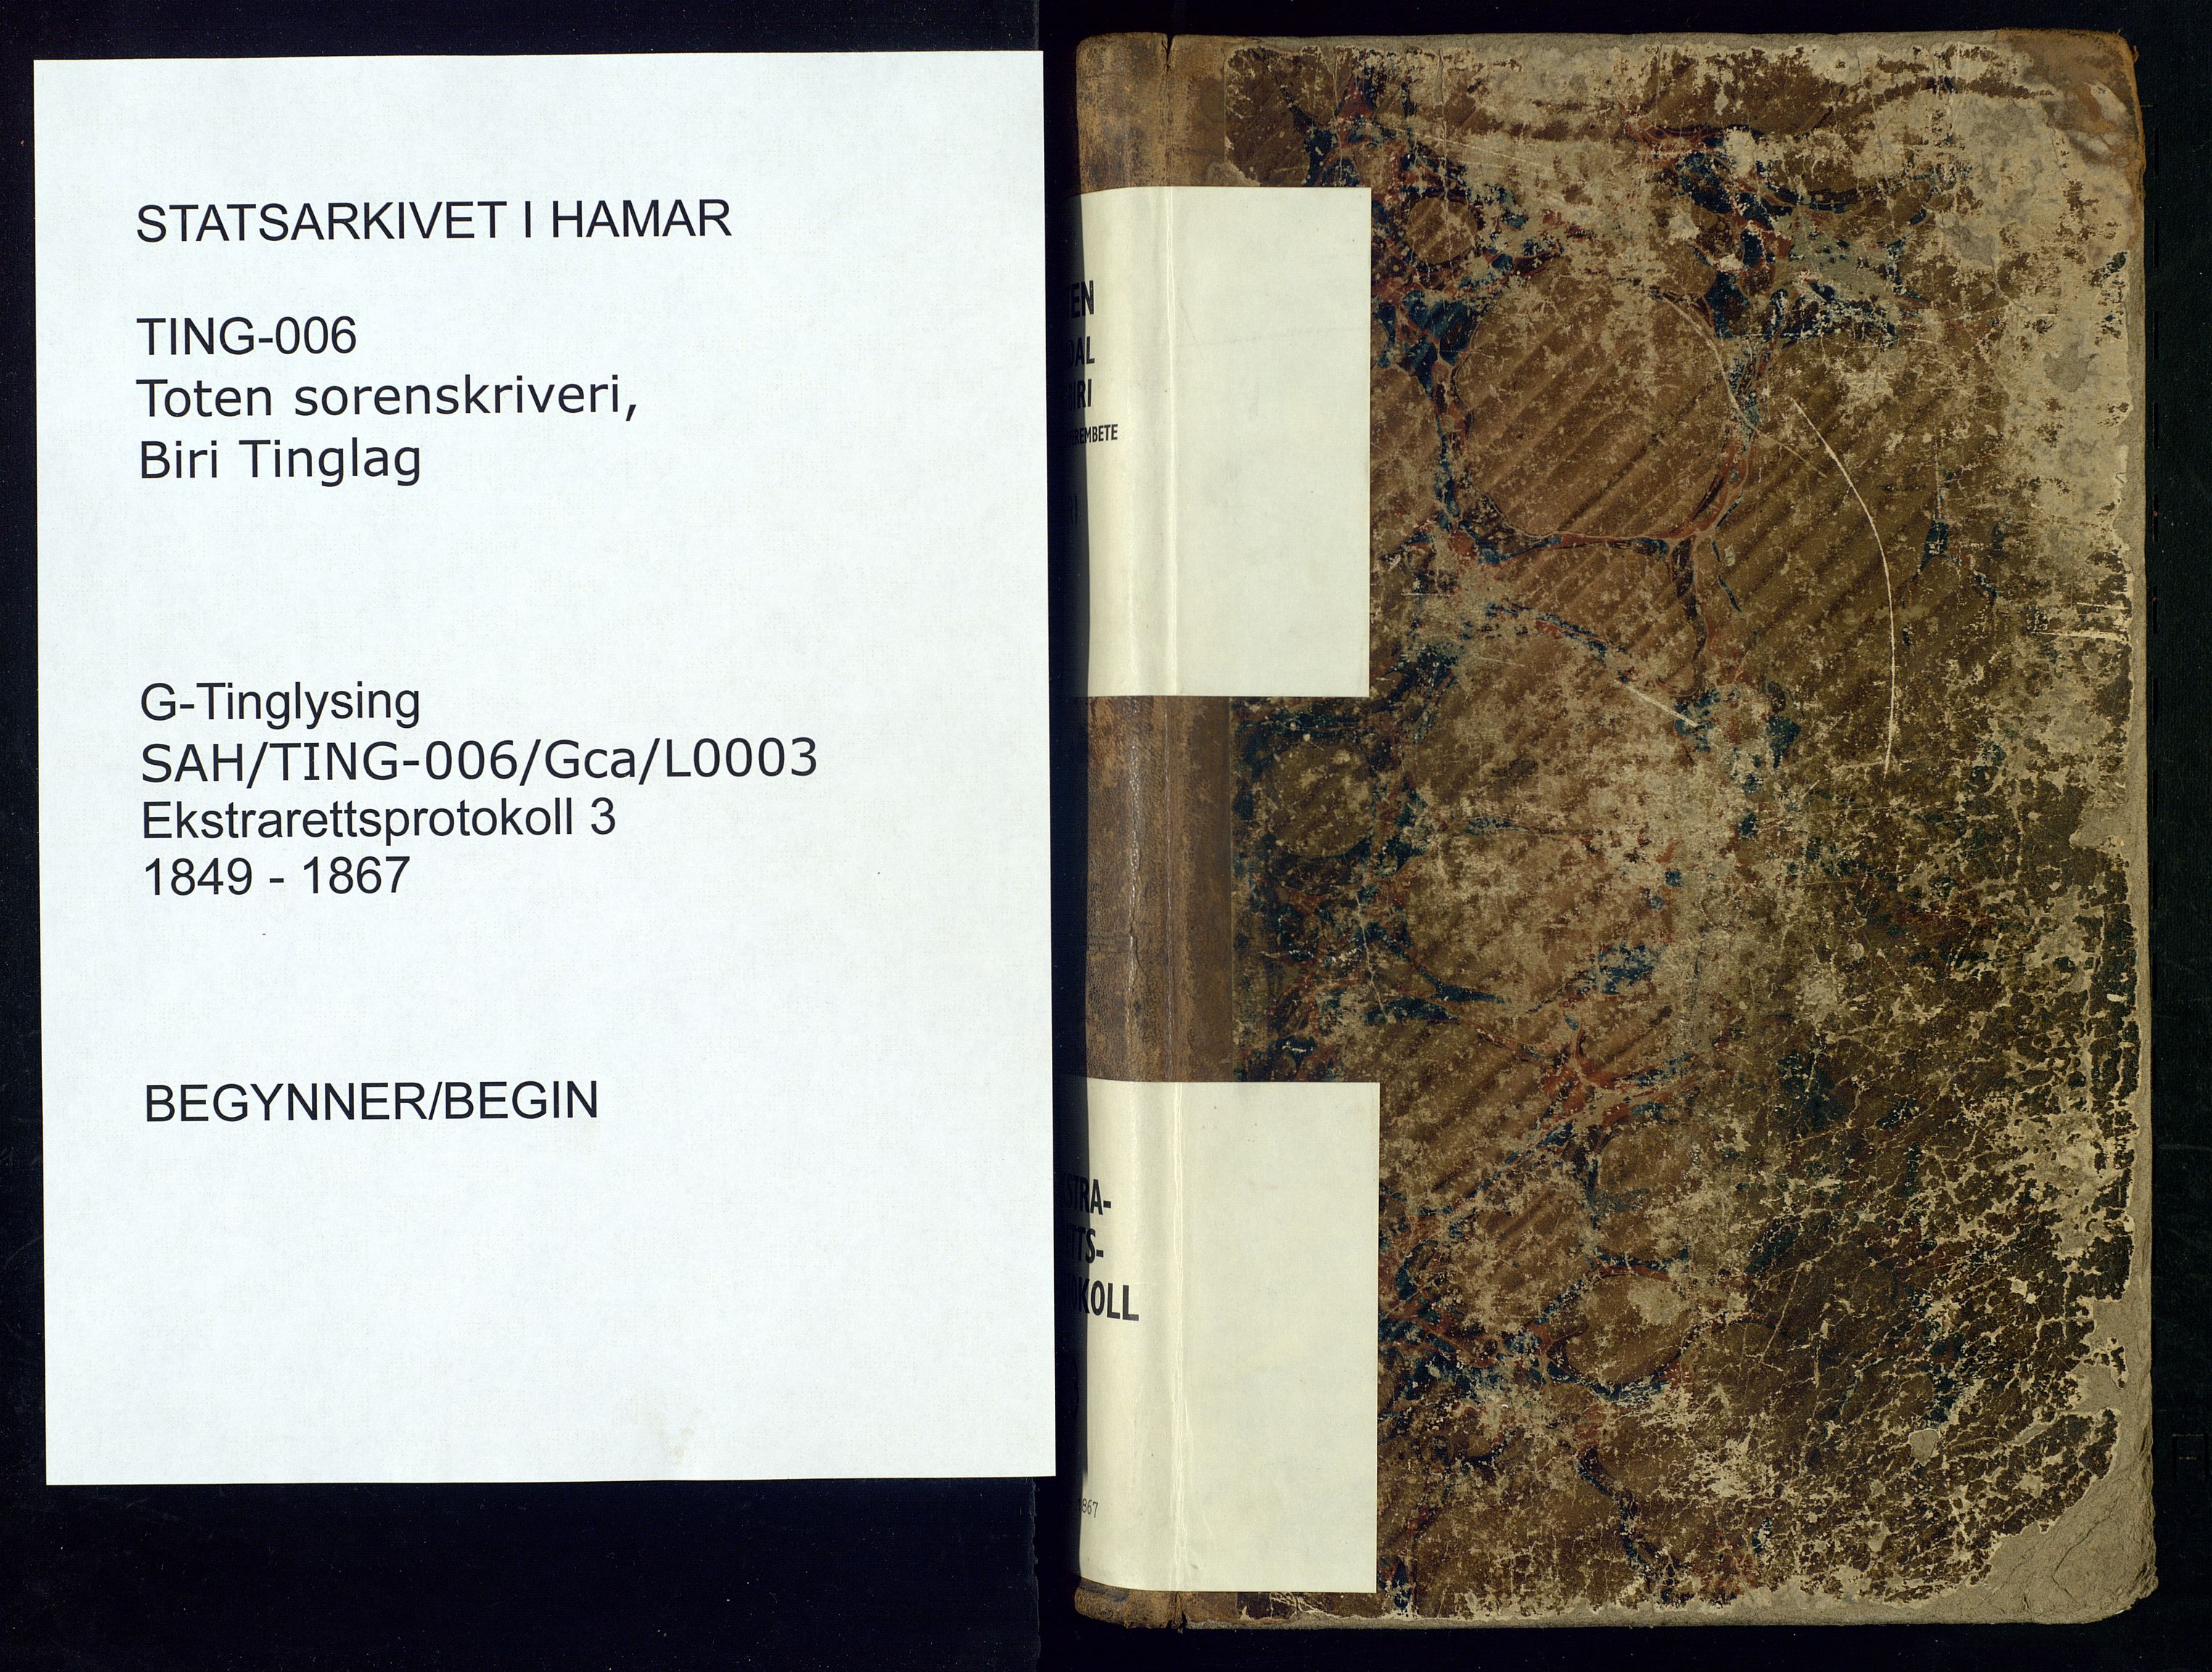 STATSARKIVET I HAMAR
TING-006
Toten sorenskriveri,
Biri Tinglag
G-Tinglysing
SAH/TING-006/Gca/L0003
Ekstrarettsprotokoll 3
1849 - 1867
BEGYNNER/BEGIN
EN
DAL
IRI
REMBETE
RI
STRA-
ETTS-
OKOLL
867